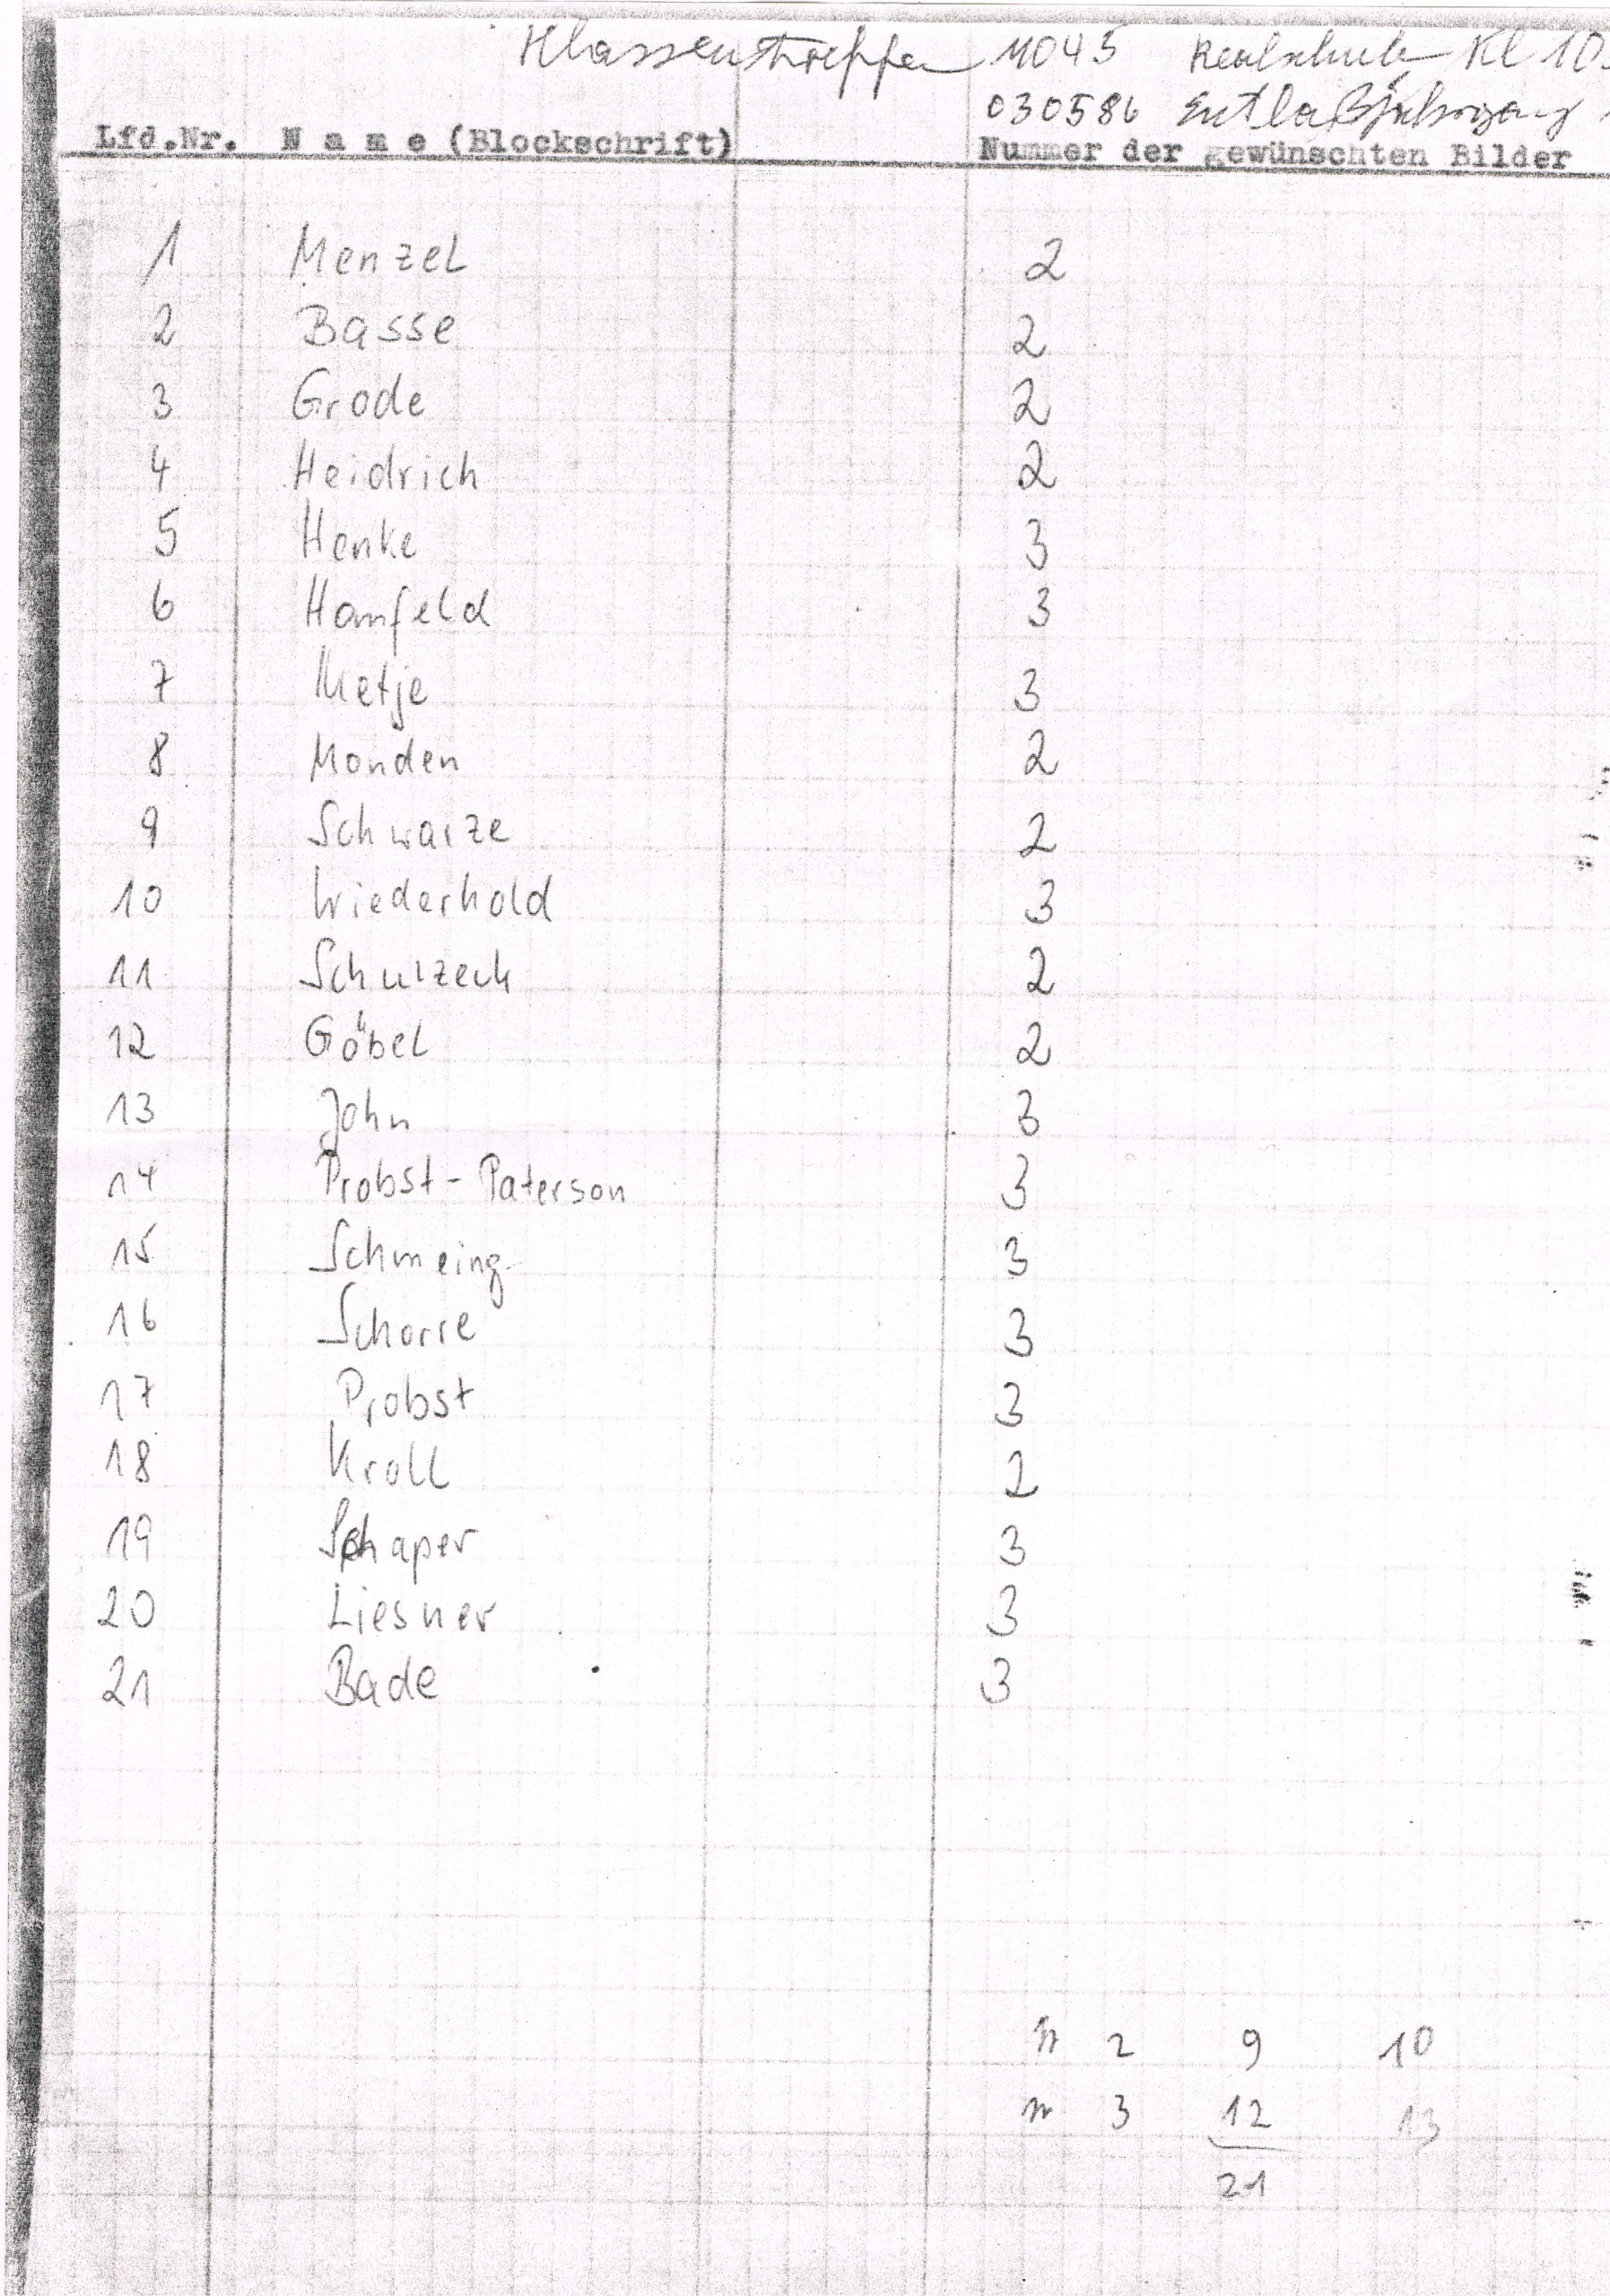 Klassentreffen 11045 Realschule Kl 10
030586 Entlaßjahrgang
Lfd.Nr. N a m e (Blockschrift) Nummer der gewünschten Bilder
1 Menzel 2
2 Basse 2
3 Grode 2
4 Heidrich 2
5 Henke 3
6 Hamfeld 3
7 Metje 3
8 Monden 2
9 Schwarze 2
10 Wiederhold 3
11 Schulzeck 2
12 Göbel 2
13 John 3
14 Probst-Paterson 3
15 Schmeing 3
16 Schorre 3
17 Probst 3
18 Kroll 2
19 Schaper 3
20 Liesner 3
21 Bade 3
2 9 10
3 12 13
21